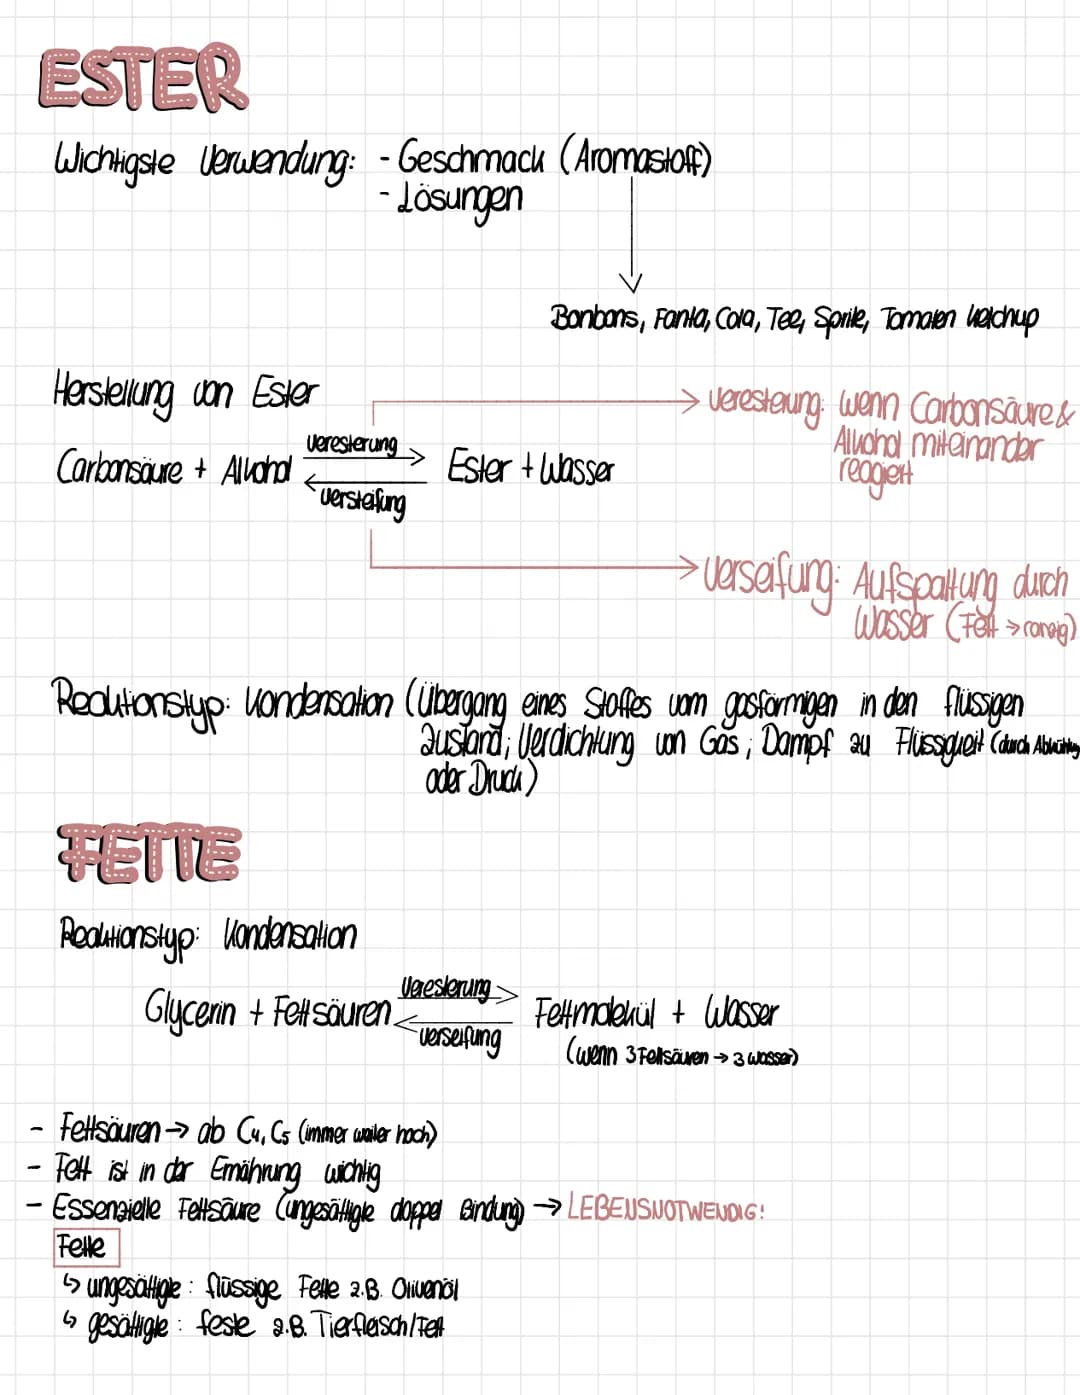 ESTER
Wichtigste Verwendung: - Geschmack (Aromastoff)
- Lösungen
Bonbons, Fanta, Cola, Tee, Sprite, Tomaten ketchup
Herstellung von Ester
→ Veresterung: wenn Carbonsäure &
Alkohol miteinander
reagiert
Carbonsäure + Alkohol Veresterung Ester + Wasser
Versteifung
→ Verseifung: Aufspaltung durch
Wasser (Fett → ranzig)
Reaktionstyp: Kondensation (Übergang eines Stoffes vom gasförmigen in den flüssigen
Zustand; Verdichtung von Gas; Dampf zu Flüssigkeit (durch Abkühlung
oder Druck)
FETTE
Reaktionstyp: Kondensation
Glycerin + Fettsäuren Veresterung Fettmolekül + Wasser
Verseifung
(wenn 3 Fettsäuren → 3 Wasser)
- Fettsäuren → ab C4, C5 (immer weiter hoch)
- Fett ist in der Ernährung wichtig
- Essenzielle Fettsäure (ungesättigte doppel Bindung) → LEBENSNOTWENDIG!
Fette
↳ ungesättigte: flüssige Fette z.B. Olivenöl
↳ gesättigte: feste z.B. Tierfleisch/Fett